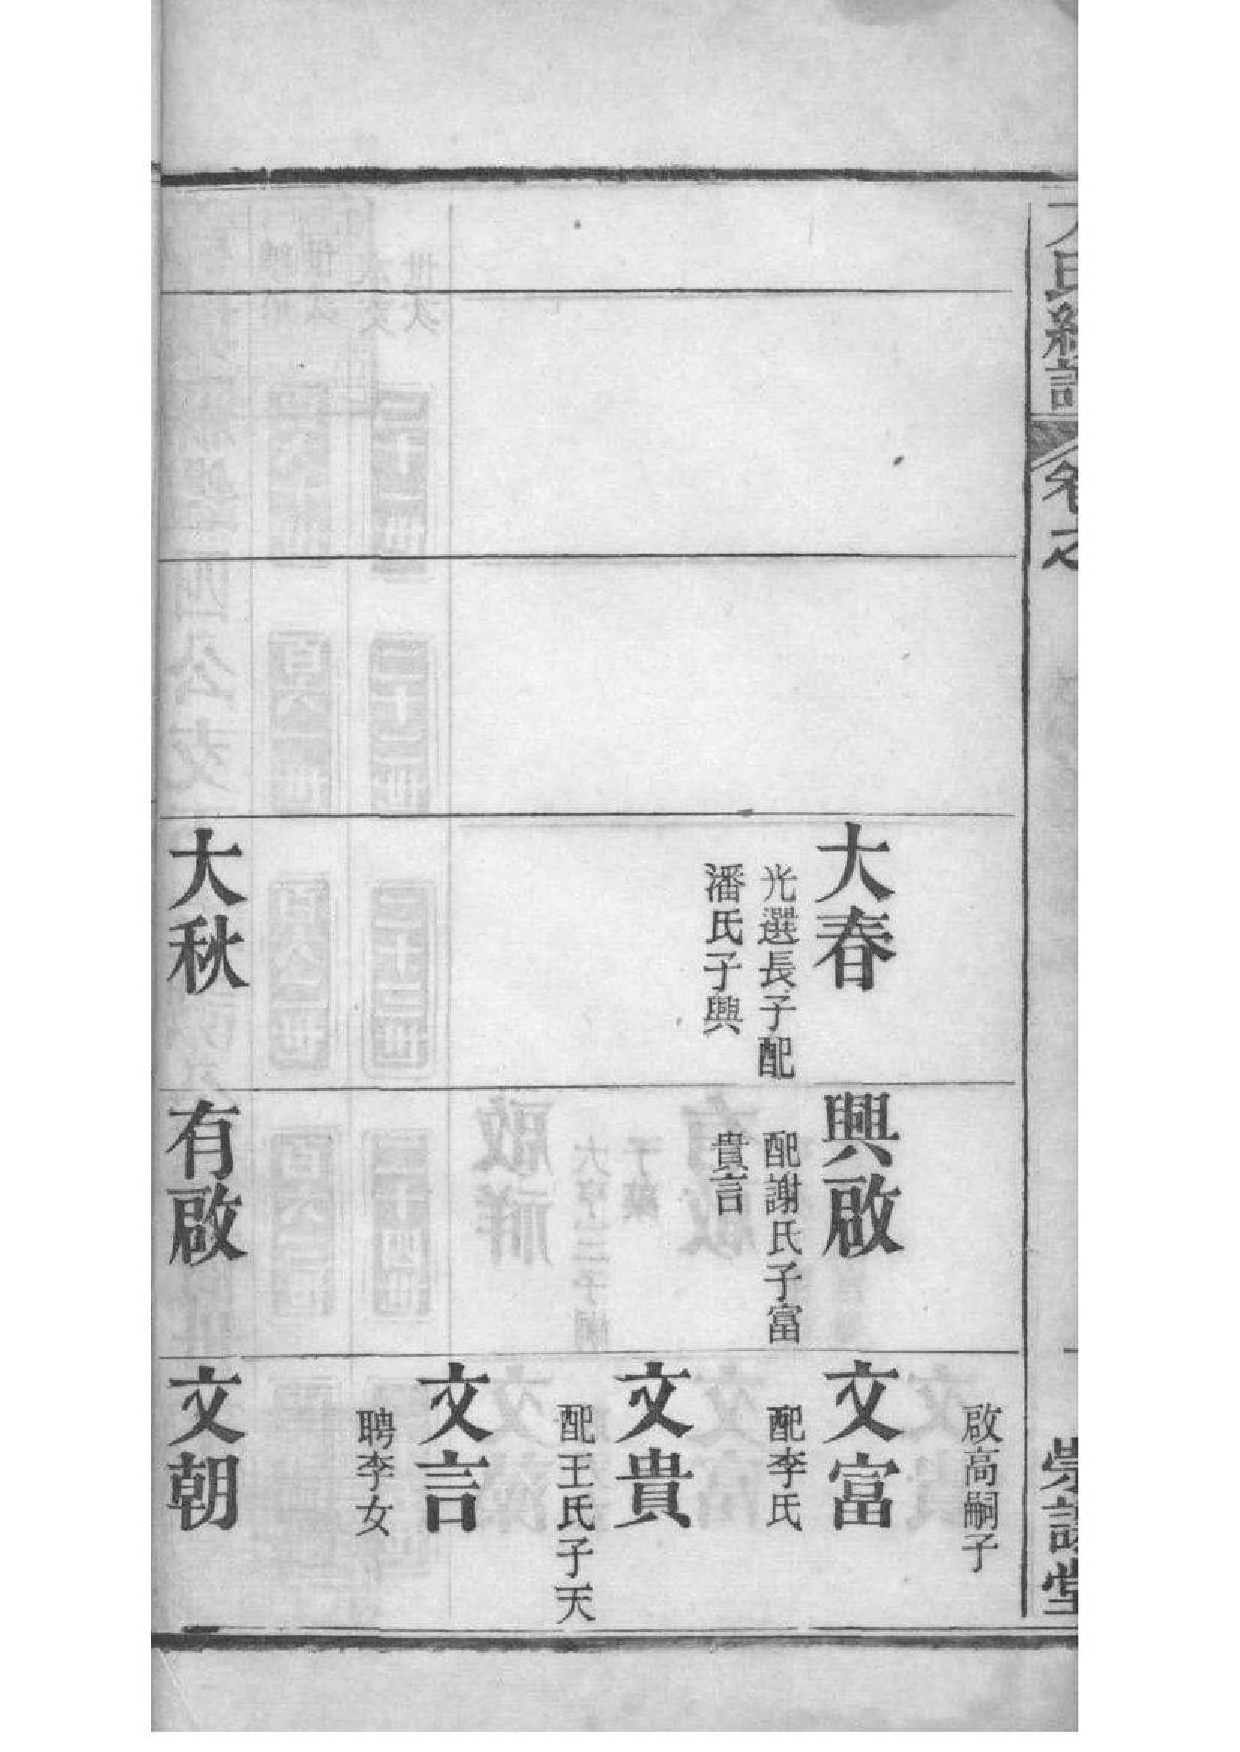 氏統譜
卷之
崇譜堂
大春
光選長子配
潘氏子興
大秋
興啟
配謝氏子富
貴言
有啟
啟高嗣子
文富
配李氏
文貴
配王氏子天
文言
聘李女
文朝